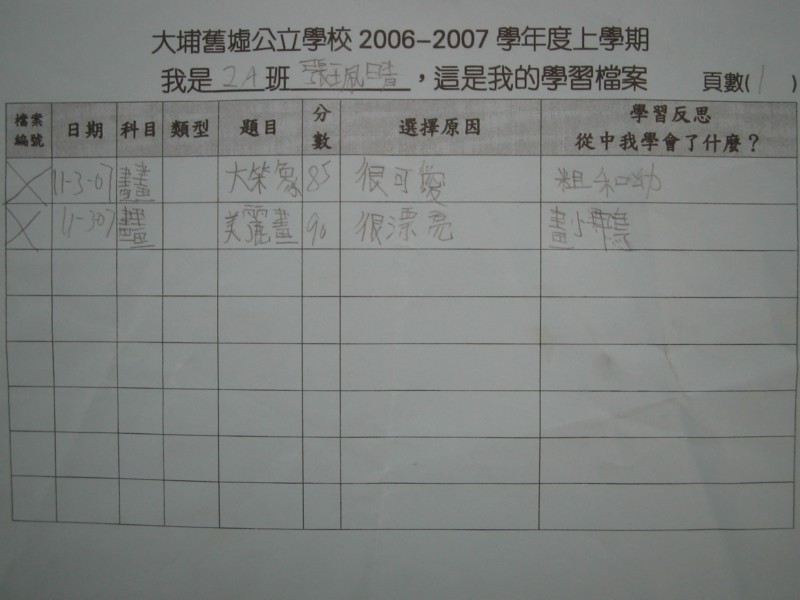 大埔舊墟公立學校 2006-2007 學年度上學期
我是 2A 班 張珮晴 ，這是我的學習檔案 頁數( 1 )
檔案編號 日期 科目 類型 題目 分數 選擇原因 學習反思 從中我學會了什麼？
11-3-07 畫 大笨象 85 很可愛 粗和幼
美麗畫 90 很漂亮 畫小鴨